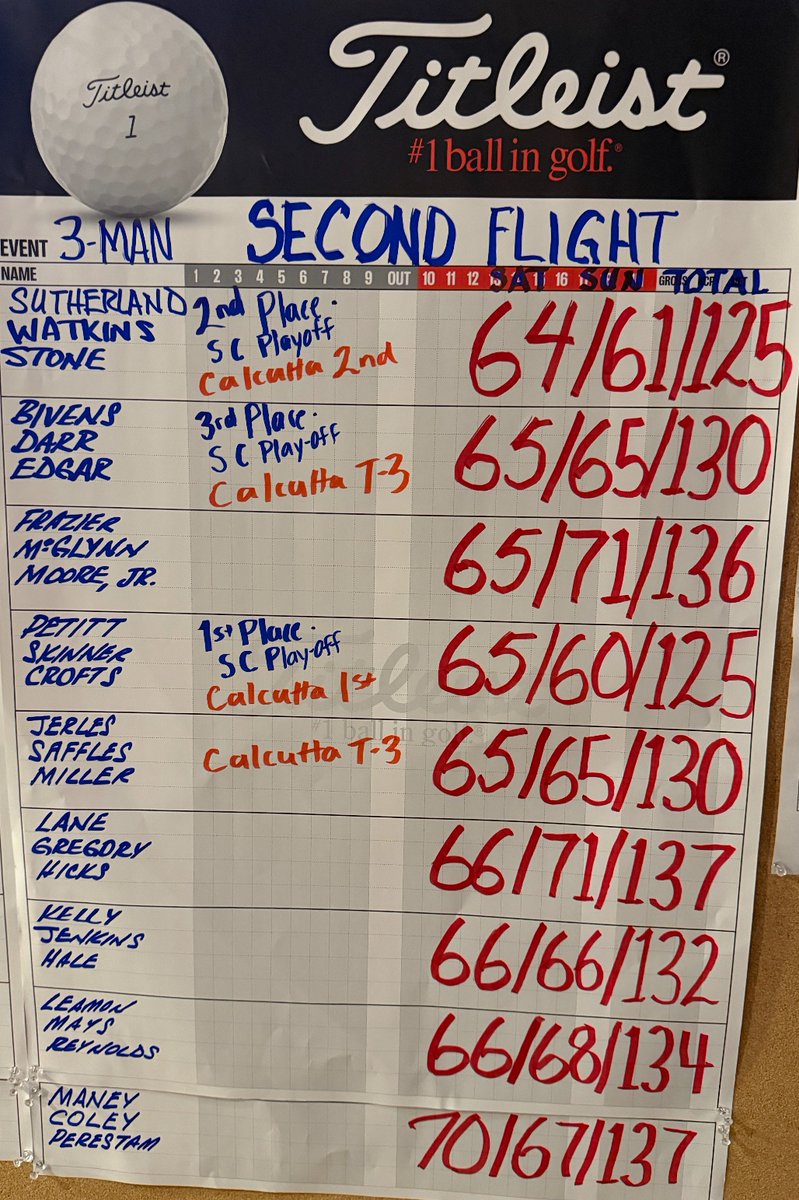 Titleist
1
Titleist®
#1 ball in golf.®
EVENT 3-MAN SECOND FLIGHT
NAME 1 2 3 4 5 6 7 8 9 OUT 10 11 12 SAT 16 SUN TOTAL
SUTHERLAND
WATKINS
STONE
2nd Place.
SC Playoff
Calcutta 2nd
64/61/125
BIVENS
DARR
EDGAR
3rd Place.
SC Play-off
Calcutta T-3
65/65/130
FRAZIER
McGLYNN
MOORE, JR.
65/71/136
PETITT
SKINNER
CROFTS
1st Place.
SC Play-off
Calcutta 1st
65/60/125
Titleist
#1 ball in golf.®
JERLES
SAFFLES
MILLER
Calcutta T-3
65/65/130
LANE
GREGORY
HICKS
66/71/137
KELLY
JENKINS
HALE
66/66/132
LEAMON
MAYS
REYNOLDS
66/68/134
MANEY
COLEY
PERESTAM
70/67/137